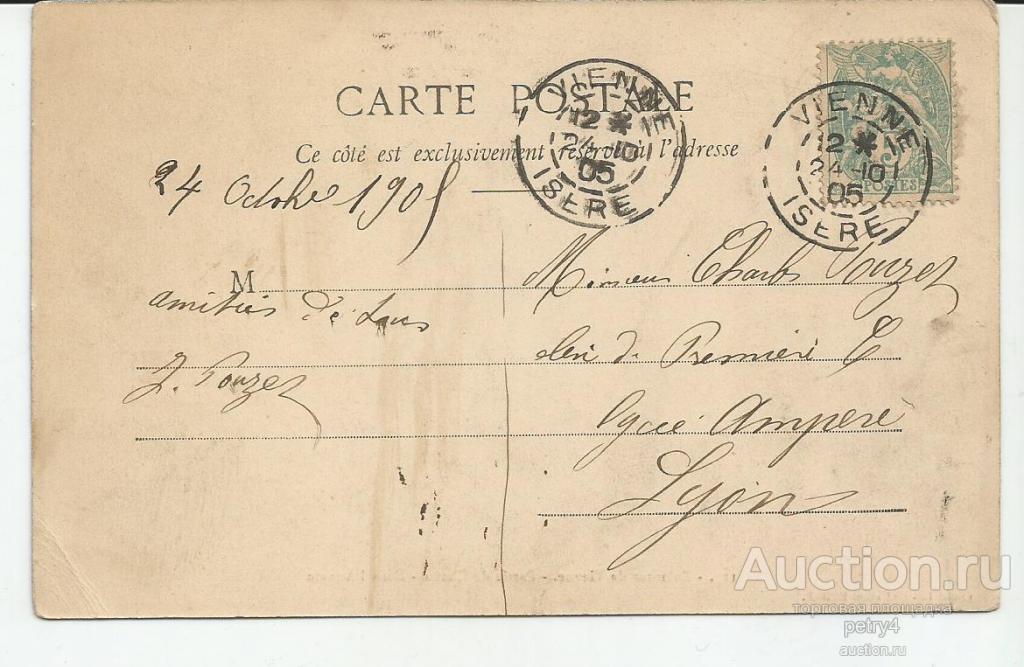 CARTE POSTALE
Ce côté est exclusivement réservé à l'adresse
VIENNE
12 *
24-10
05
ISERE
VIENNE
12 *
24-10
05
ISERE
POSTES
24 Octobre 1905
M
amitiés de tous
J. Pouzet
Monsieur Charles Pouzet
élève de Première C
lycée Ampère
Lyon
Auction.ru
торговая площадка
petry4
auction.ru